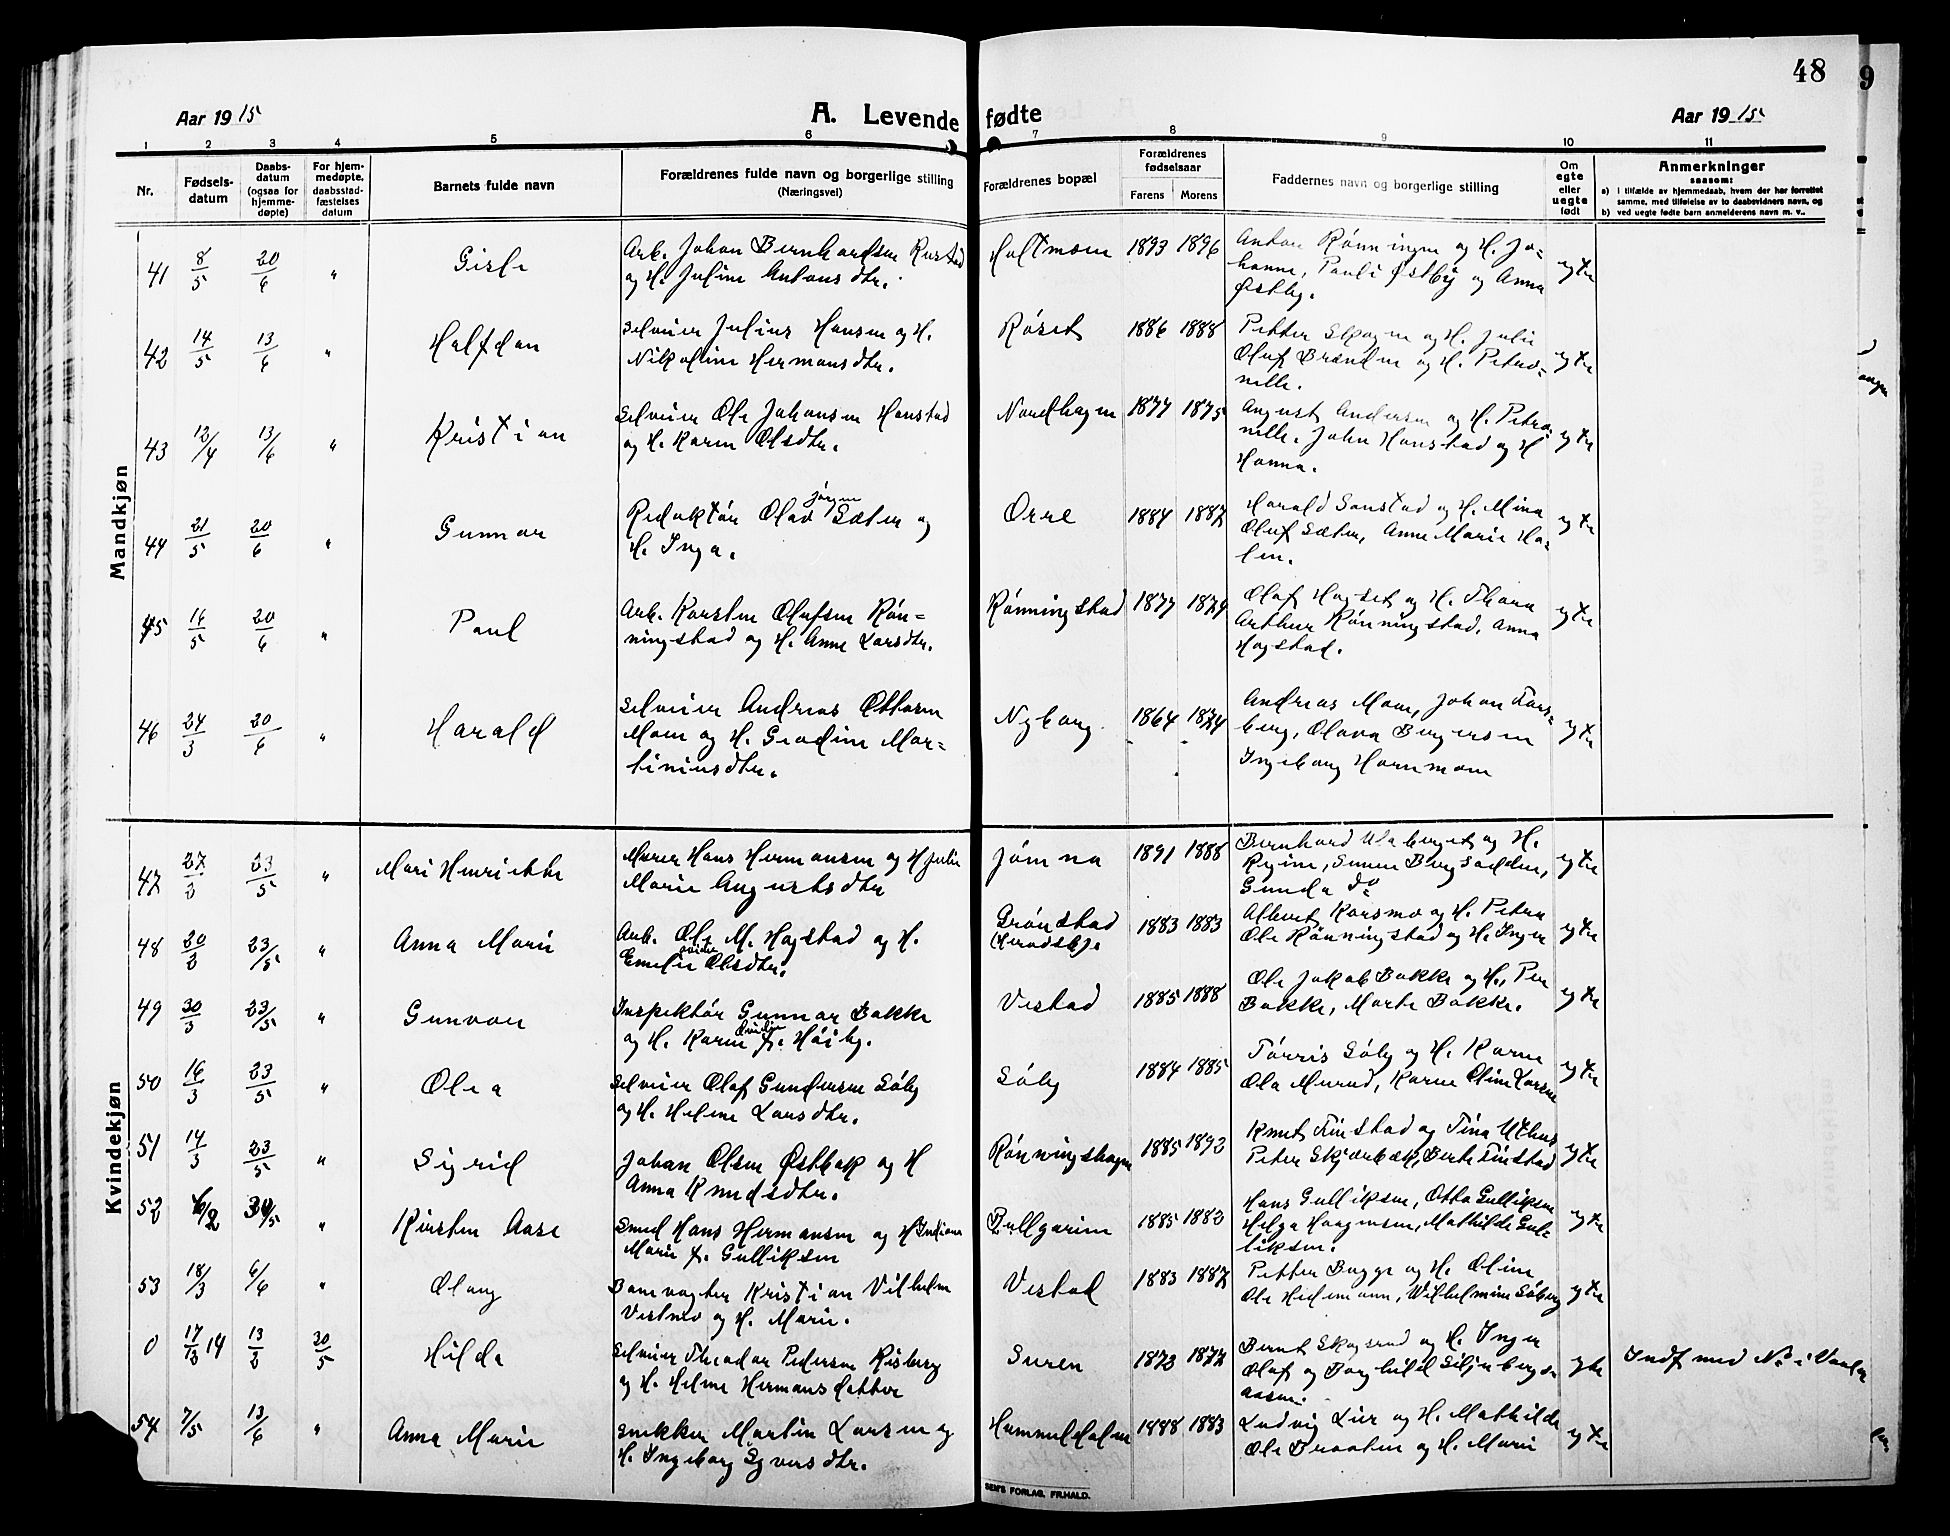 48
9
Aar 1915 A. Levende fødte Aar 1915
1 2 3 4 5 6 7 8 9 10 11
Nr. Fødsels-datum Daabs-datum (ogsaa for hjemme-døpte) For hjem-medøpte. daabsstad-fæstelses datum Barnets fulde navn Forældrenes fulde navn og borgerlige stilling (Næringsvei) Forældrenes bopæl Forældrenes fødselsaar Farens Morens Faddernes navn og borgerlige stilling Om egte eller uegte født Anmerkninger saasom: a) i tilfælde av hjemmedaab, hvem der har forrettet samme, med tilføielse av to daabsvidners navn, og b) ved uegte fødte barn anmelderens navn m. v.
Mandkjøn
41 8/5 20/6 " Gisle Arb. Johan Bernhardsen Rustad Holtmoen 1893 1896 Anton Rønningen og H. Jo= egte
og H. Juline Antonsdtr. hanne, Pauli Østby og Anna
Østby.
42 14/5 13/6 " Halfdan Selveier Julius Hansen og H. Røset 1886 1888 Petter Skogen og H. Julie egte
Nikoline Hermansdtr. Oluf Brenden og H. Petro=
nelle.
43 12/4 13/6 " Kristian Selveier Ole Johansen Honstad Nordhagen 1877 1875 August Andersen og H. Petro= egte
og H. Karen Olsdtr. nelle. John Honstad og H
Hanna.
44 21/5 20/6 " Gunnar Redaktør Olav Jørgen Sæter og Orre 1884 1887 Harald Sonstad og H. Mina egte
H. Inga. Oluf Sæter, Anne Marie Ho=
len.
45 16/5 20/6 " Paul Arb. Karsten Olufsen Røn= Rønningstad 1877 1879 Olaf Hagset og H. Thora egte
ningstad og H. Anne Larsdtr. Arthur Rønningstad, Anna
Hagstad.
46 24/3 20/6 " Harald Selveier Andreas Ottosen Nyborg 1864 1874 Andreas Moen, Johan Fors= egte
Moen og H. Gradine Mar= berg, Olava Bergersen
tiniusdtr. Ingeborg Hornmoen
Kvindekjøn
47 27/2 23/5 " Mari Henriette Murer Hans Hermansen og H Julie Jømna 1891 1888 Bernhard Ulaberget og H. egte
Marie Augustsdtr Regine, Simen Bergsodden,
Gunda do
48 20/2 23/5 " Anna Marie Arb. Ole M. Hagstad og H. Grønstad 1883 1883 Albert Korsmo og H. Petra egte
Emelie Olsdtr. Ole Rønningstad og H. Inger
49 30/3 23/5 " Gunvor Inspektør Gunnar Bakke Vestad 1885 1888 Ole Jakob Bakke og H., Per egte
og H. Karen f. Høiby. Bakke, Marte Bakke.
50 16/3 23/5 " Olea Selveier Olaf Gundersen Søby Søby 1884 1885 Tørris Søby og H. Karen egte
og H. Helene Larsdtr. Ola Murud, Karen Oline Larsen
51 14/3 23/5 " Sigrid Johan Olsen Østbak og H Rønningshagen 1885 1892 Knut Finstad og Tina Uthus egte
Anna Knudsdtr. Peter Skjærbæk, Berte Finstad
52 6/2 30/5 " Kirsten Aase Smed Hans Hermansen og H Indiana Bullgarien 1885 1882 Hans Gulliksen, Otto Gulliksen egte
Marie f. Gulliksen Helga Haagensen, Mathilde Gul-
liksen.
53 18/3 6/6 " Olaug Banevogter Kristian Vilhelm Vestad 1883 1887 Petter Bagge og H. Oline egte
og H. Marie. Ole Hidemann, Wilhelmine Søberg
0 17/12 14 13/2 30/5 Hilde Selveier Theodor Pedersen Risberg Suren 1873 1877 Bernt Skogsrud og H. Inger egte Indf med No i Vaaler
og H. Helene Hermansdatter Olaf og Borghild
aasen.
54 7/5 13/6 " Anna Marie Snekker Martin Larsen og Hummeldalen 1888 1883 Ludvig Lier og H. Mathilde egte
H. Ingeborg Syversdtr. Ole Braaten og H. Marie
SEM'S FORLAG. FR.HALD.